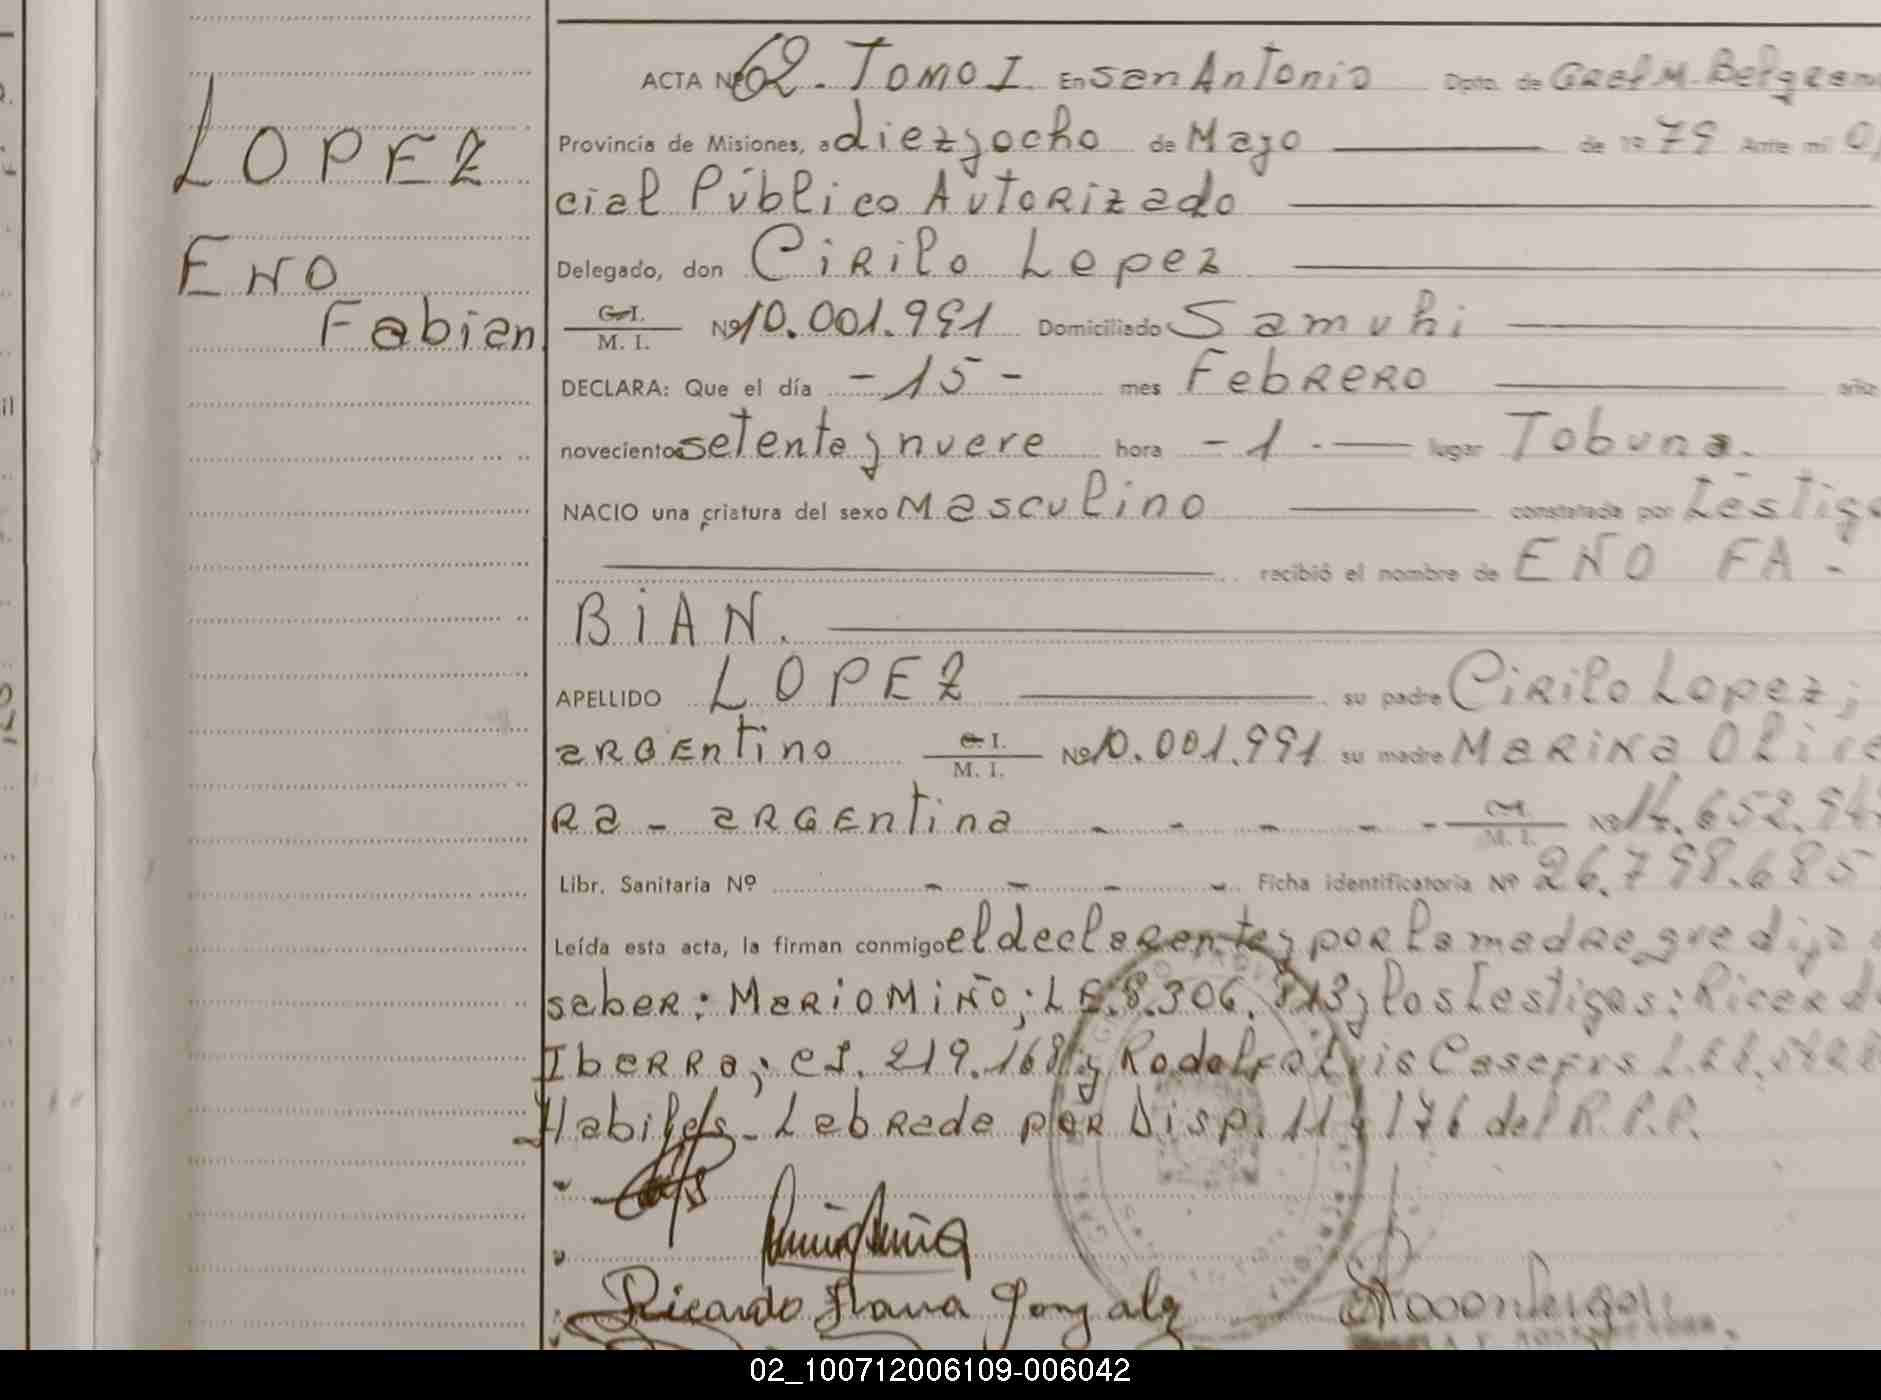 LOPEZ
ENO
Fabian
ACTA Nº 62. TOMO I. En San Antonio Dpto. de Gral M. Belgrano
Provincia de Misiones, a diez y ocho de Mayo de 1979 Ante mí Ofi
cial Público Autorizado
Delegado, don Cirilo Lopez
C. I.
M. I. Nº 10.001.991 Domiciliado Samuhi
DECLARA: Que el día - 15 - mes Febrero año
novecientos setenta y nueve hora - 1 - lugar Tobuna.
NACIO una criatura del sexo Masculino constatada por testigo
recibió el nombre de ENO FA -
BIAN.
APELLIDO LOPEZ su padre Cirilo Lopez;
argentino C. I.
M. I. Nº 10.001.991 su madre Marina Olive
Ra - argentina - - - - - C. I.
M. I. Nº 14.652.94
Libr. Sanitaria Nº - - - - Ficha identificatoria Nº 26.798.685
Leída esta acta, la firman conmigo el declarante y por la madre que dijo
saber: Mario Miño; L E. 8.306. 813 y los testigos: Ricard
Iberra; CI. 219.168 y Rodolfo Luis
Habiles - Labrada por Disp. 11 y 176 del R.P.P.
Ricardo
02_100712006109-006042